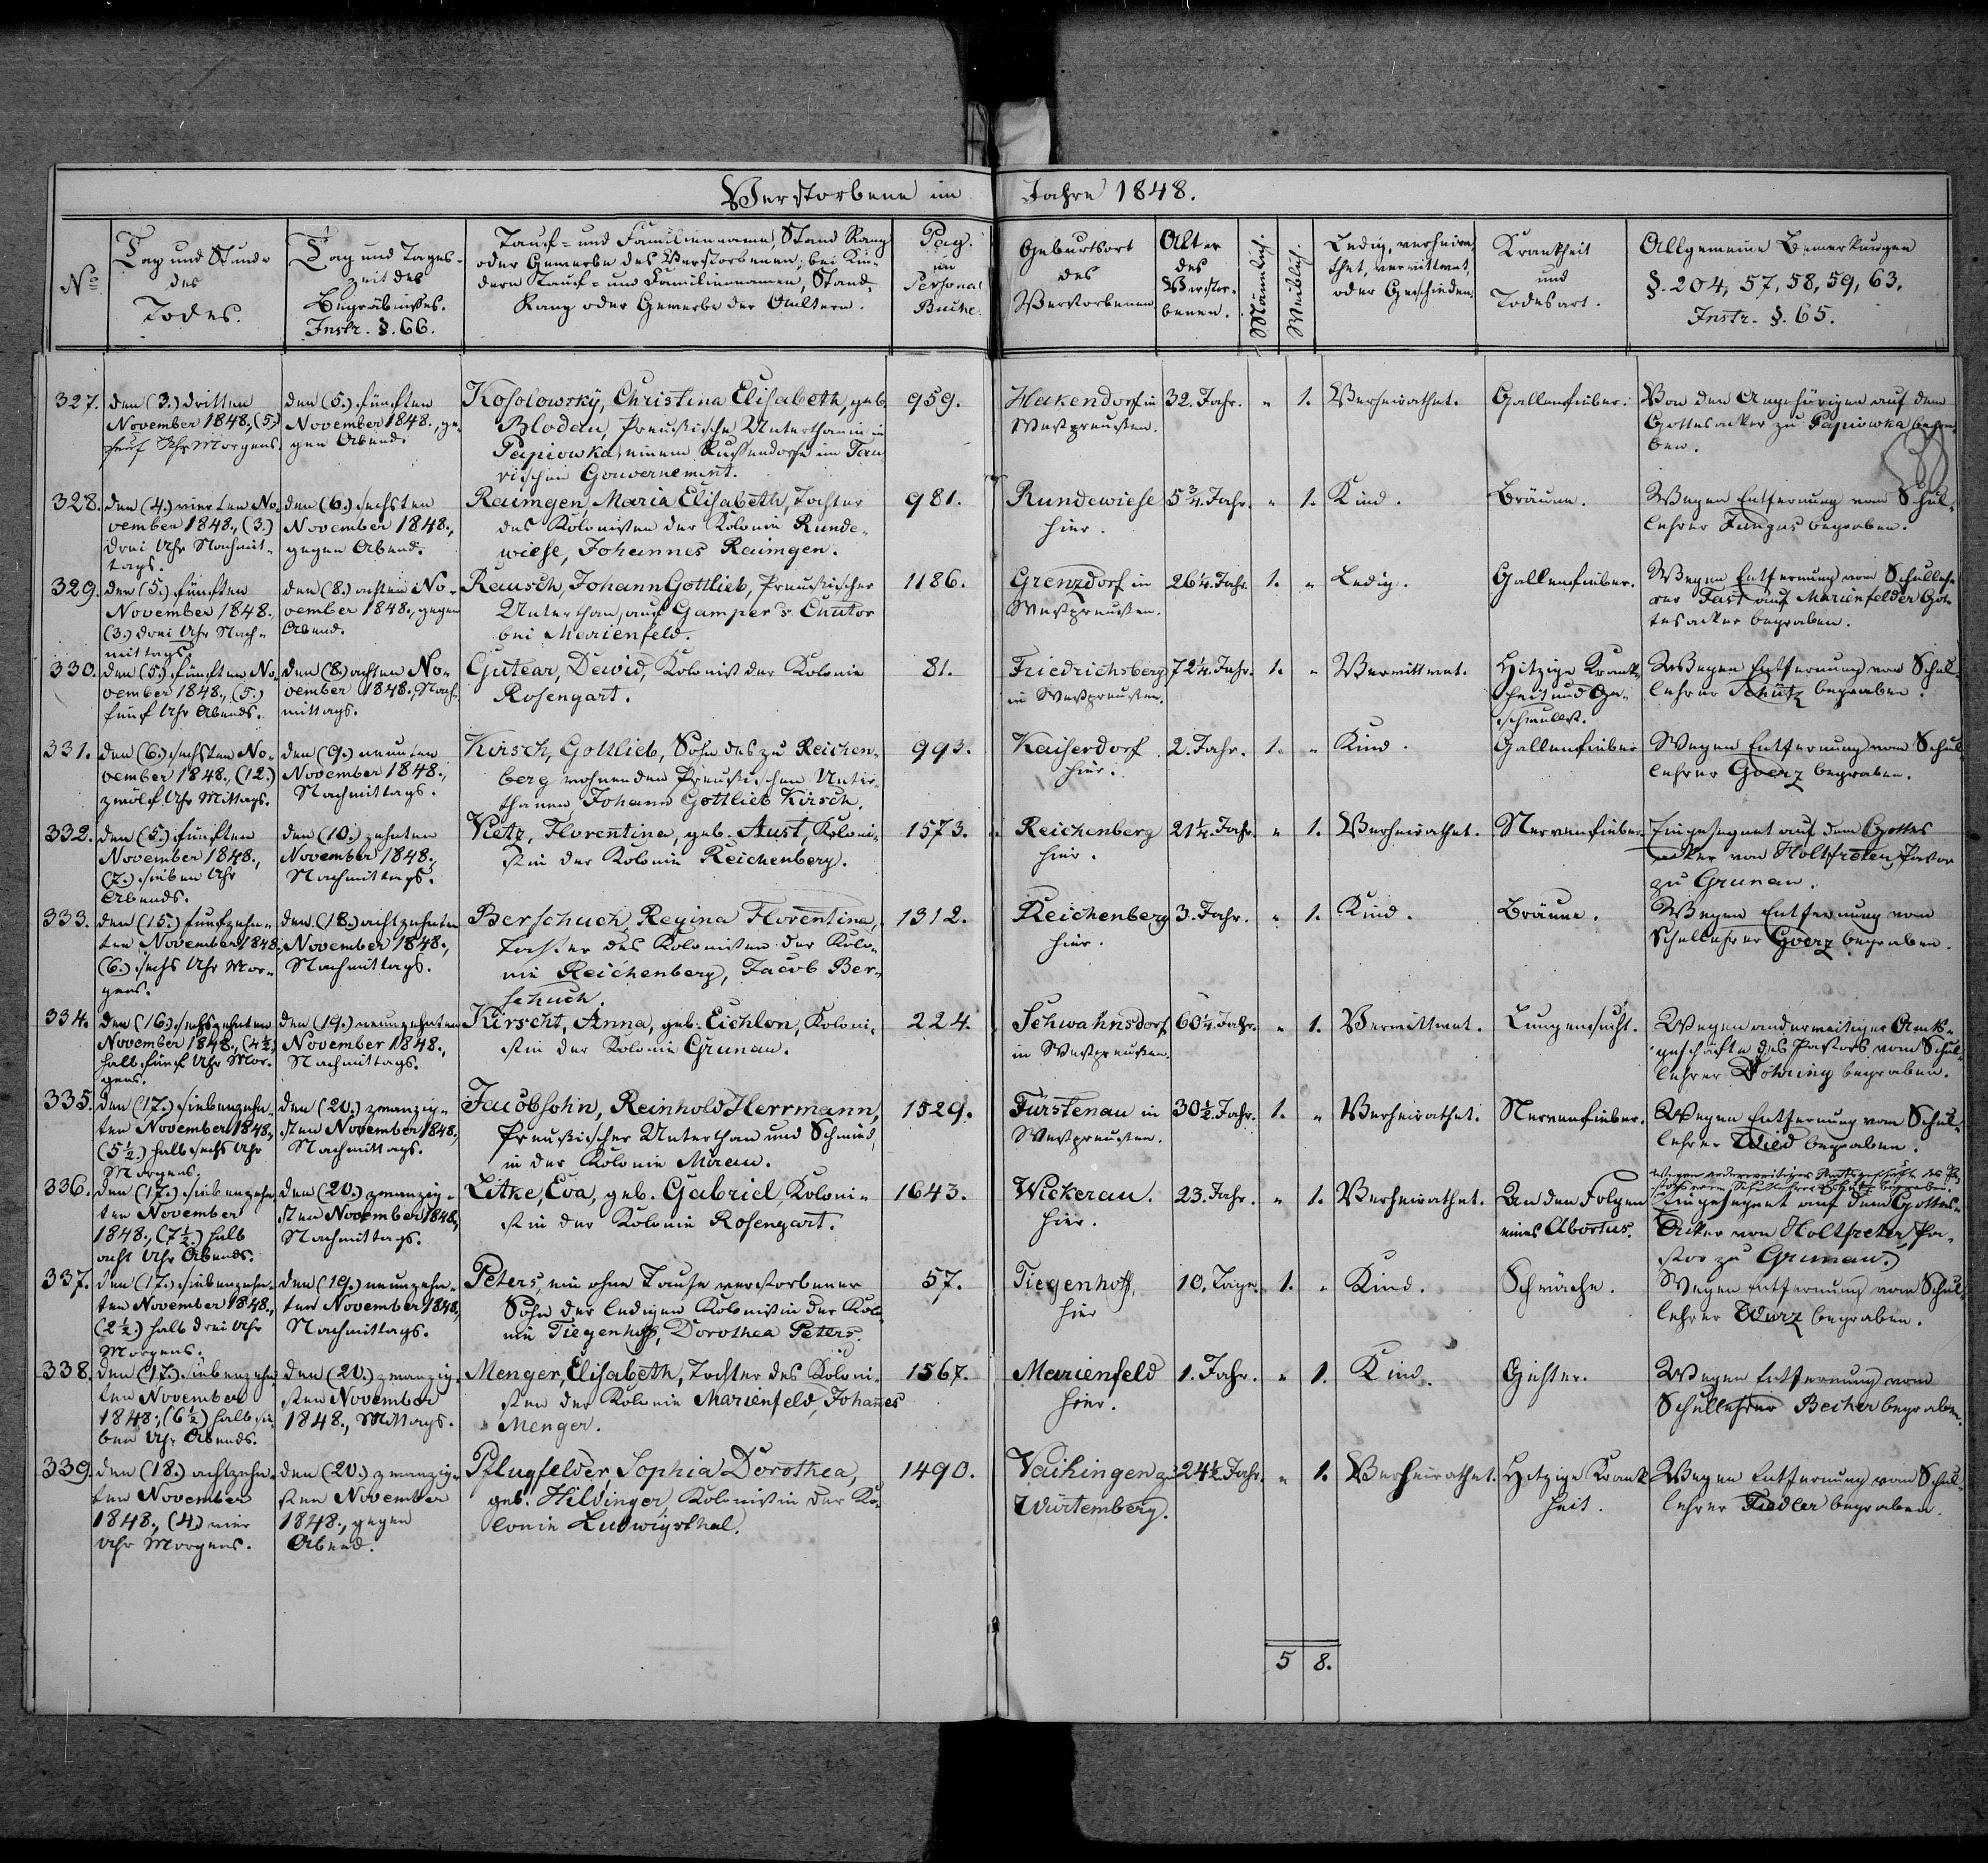 Verstorbene im Jahre 1848.
No
Tag und Stunde
des
Todes.
Tag und Tages-
zeit des
Begräbnisses.
Instr. §. 66.
Tauf- und Familienname, Stand Rang
oder Gewerbe des Verstorbenen; bei Kin-
dern Tauf- und Familiennamen, Stand,
Rang oder Gewerbe der Aeltern.
Pag.
im
Personal
Buche.
Geburtsort
des
Verstorbenen
Alter
des
Verstor-
benen.
Männlich.
Weiblich.
Ledig, verheira-
thet, verwittwet,
oder Geschieden.
Krankheit
und
Todesart.
Allgemeine Bemerkungen
§. 204, 57, 58, 59, 63.
Instr. §. 65.
327.
den (3.) dritten
November 1848, (5.)
fünf Uhr Morgens.
den (5.) fünften
November 1848., ge-
gen Abend.
Kosolowsky, Christina Elisabeth, geb.
Blodau, Preußische Unterthanin in
Papiowka, einem Russendorfe im Tau-
rischen Gouvernement.
959.
Hakendorf in
Westpreußen.
32. Jahr.
" 1.
Verheirathet.
Gallenfieber.
Von den Angehörigen auf dem
Gottesacker zu Papiowka begra-
ben.
328.
den (4.) vierten No-
vember 1848., (3.)
drei Uhr Nachmit-
tags.
den (6.) sechsten
November 1848.,
gegen Abend.
Raimgen, Maria Elisabeth, Tochter
des Kolonisten der Kolonie Runde-
wiese, Johannes Raimgen.
981.
Rundewiese
hier.
5 3/4. Jahr.
" 1.
Kind.
Bräune.
Wegen Entfernung vom Schul-
lehrer Fungus begraben.
329.
den (5.) fünften
November 1848.,
(3.) drei Uhr Nach-
mittags.
den (8.) achten No-
vember 1848., gegen
Abend.
Rausch, Johann Gottlieb, Preußischer
Unterthan, auf Gamper's Chutor
bei Marienfeld.
1186.
Grenzdorf in
Westpreußen.
26 1/4. Jahr.
1. "
Ledig.
Gallenfieber.
Wegen Entfernung vom Schulleh-
rer Fast auf Marienfelder Got-
tesacker begraben.
330.
den (5.) fünften No-
vember 1848., (5.)
fünf Uhr Abends.
den (8.) achten No-
vember 1848., Nach-
mittags.
Gutear, Dewid, Kolonist der Kolonie
Rosengart.
81.
Friedrichsberg
in Westpreußen.
72 1/4. Jahr.
1. "
Verwittwet.
Hitzige Krank-
heit und Ge-
schwulst.
Wegen Entfernung vom Schul-
lehrer Schütz begraben.
331.
den (6.) sechsten No-
vember 1848., (12.)
zwölf Uhr Mittags.
den (9.) neunten
November 1848.,
Nachmittags.
Kirsch, Gottlieb, Sohn des zu Reichen-
berg wohnenden Preußischen Unter-
thanen Johann Gottlieb Kirsch.
993.
Kaiserdorf
hier.
2. Jahr.
1. "
Kind.
Gallenfieber
Wegen Entfernung vom Schul-
lehrer Goerz begraben.
332.
den (5.) fünften
November 1848.,
(7.) sieben Uhr
Abends.
den (10.) zehnten
November 1848.,
Nachmittags.
Vietz, Florentina, geb. Aust, Koloni-
stin der Kolonie Reichenberg.
1573.
Reichenberg
hier.
21 1/4. Jahr.
" 1.
Verheirathet.
Nervenfieber.
Eingesegnet auf dem Gottes
acker von Holtfreter, Pastor
zu Grunau.
333.
den (15.) fünfzehn-
ten November 1848.,
(6.) sechs Uhr Mor-
gens.
den (18.) achtzehnten
November 1848.,
Nachmittags.
Berschuch, Regina Florentina,
Tochter des Kolonisten der Kolo-
nie Reichenberg, Jacob Ber-
schuch.
1312.
Reichenberg
hier.
3. Jahr.
" 1.
Kind.
Bräune.
Wegen Entfernung vom
Schullehrer Goerz begraben.
334.
den (16.) sechszehnten
November 1848., (4 1/2.)
halb fünf Uhr Mor-
gens.
den (19.) neunzehnten
November 1848.,
Nachmittags.
Kirscht, Anna, geb. Eichlon, Koloni-
stin der Kolonie Grunau.
224.
Schwahnsdorf
in Westpreußen.
60 1/4. Jahr.
" 1.
Verwittwet.
Lungensucht.
Wegen anderweitiger Amts-
geschäfte des Pastors vom Schul-
lehrer Döhring begraben.
335.
den (17.) siebenzehn-
ten November 1848.,
(5 1/2.) halb sechs Uhr
Morgens.
den (20.) zwanzig-
sten November 1848.,
Nachmittags.
Jacobsohn, Reinhold Herrmann,
Preußischer Unterthan und Schmied,
in der Kolonie Mirau.
1529.
Fürstenau in
Westpreußen.
30 1/2. Jahr.
1. "
Verheirathet.
Nervenfieber.
Wegen Entfernung vom Schul-
lehrer Wied begraben.
336.
den (17.) siebenzehn-
ten November
1848., (7 1/2.) halb
acht Uhr Abends.
den (20.) zwanzig-
sten November 1848.,
Nachmittags.
Litke, Eva, geb. Gabriel, Koloni-
stin der Kolonie Rosengart.
1643.
Wickerau.
hier.
23. Jahr.
" 1.
Verheirathet.
An den Folgen
eines Abortus.
Wegen anderweitiger Amtsgeschäfte des Pa-
stors vom Schullehrer Schütz begraben.
(Eingesegnet auf dem Gottes-
Acker von Holtfreter, Pa-
stor zu Grunau.)
337.
den (17.) siebenzehn-
ten November 1848.,
(2 1/2.) halb drei Uhr
Morgens.
den (19.) neunzehn-
ten November 1848.,
Nachmittags.
Peters, ein ohne Taufe verstorbener
Sohn der ledigen Kolonistin der Kolo-
nie Tiegenhoff, Dorothea Peters.
57.
Tiegenhoff,
hier
10. Tage.
1. "
Kind.
Schwäche.
Wegen Entfernung vom Schul-
lehrer Wurz begraben.
338.
den (17.) siebenzehn-
ten November
1848., (6 1/2) halb sie-
ben Uhr Abends.
den (20.) zwanzig-
sten November
1848., Mittags.
Menger, Elisabeth, Tochter des Koloni-
sten der Kolonie Marienfeld, Johannes
Menger.
1567.
Marienfeld
hier.
1. Jahr.
" 1.
Kind.
Gichter.
Wegen Entfernung vom
Schullehrer Becher begraben.
339.
den (18.) achtzehn-
ten November
1848., (4.) vier
Uhr Morgens.
den (20.) zwanzig-
sten November
1848., gegen
Abend.
Pflugfelder, Sophia Dorothea,
geb. Hildinger, Kolonistin der Ko-
lonie Ludwigsthal.
1490.
Vaihingen zu
Würtemberg.
24 1/2. Jahr.
" 1.
Verheirathet.
Hitzige Krank-
heit.
Wegen Entfernung vom Schul-
lehrer Fiedler begraben.
5 8.